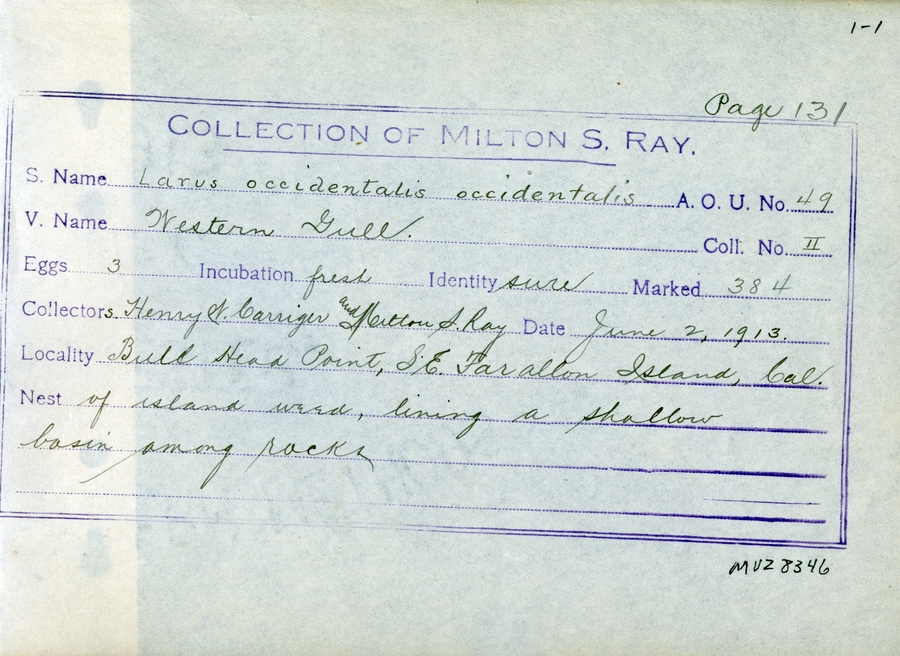 1-1
Page 131
COLLECTION OF MILTON S. RAY.
S. Name Larus occidentalis occidentalis A. O. U. No. 49
V. Name Western Gull. Coll. No. II
Eggs 3 Incubation fresh Identity sure Marked 384
Collectors. Henry W. Carriger and Milton S. Ray Date June 2, 1913.
Locality Bull Head Point, S.E. Farallon Island, Cal.
Nest of island weed, lining a shallow
basin among rocks
MVZ 8346